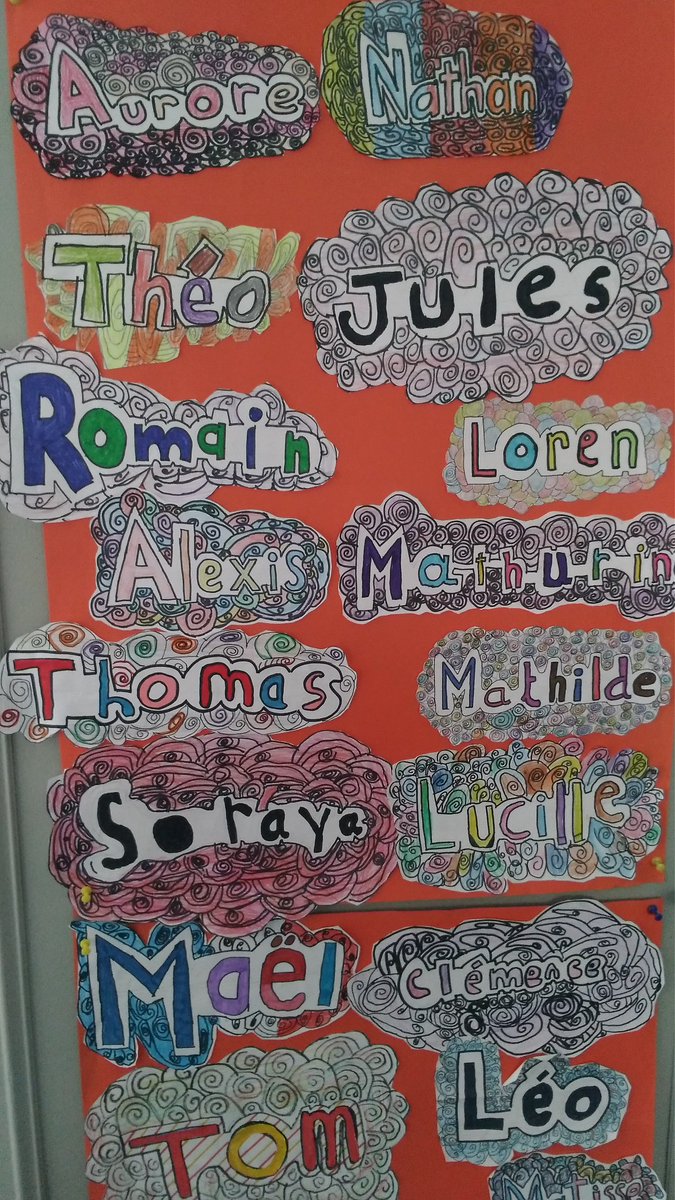 Aurore Nathan
Théo Jules
Romain Loren
Alexis Mathurin
Thomas Mathilde
Soraya Lucille
Maël Clémence
Tom Léo